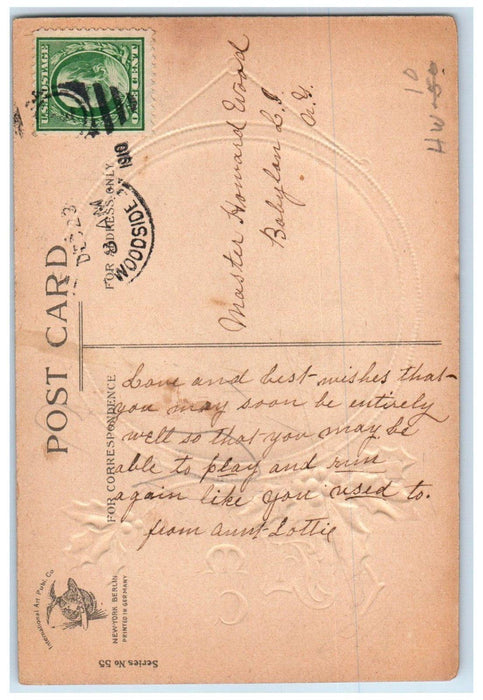 U.S. POSTAGE
ONE CENT
WOODSIDE
DEC 23
AM
1910
10
HW-50
POST CARD
FOR ADDRESS ONLY
Master Howard Wood
Babylon L.I
N.Y.
FOR CORRESPONDENCE
Love and best wishes that
you may soon be entirely
well so that you may be
able to play and run
again like you used to.
from aunt Lottie
International Art Publ. Co
NEW-YORK BERLIN
PRINTED IN GERMANY
Series No 55